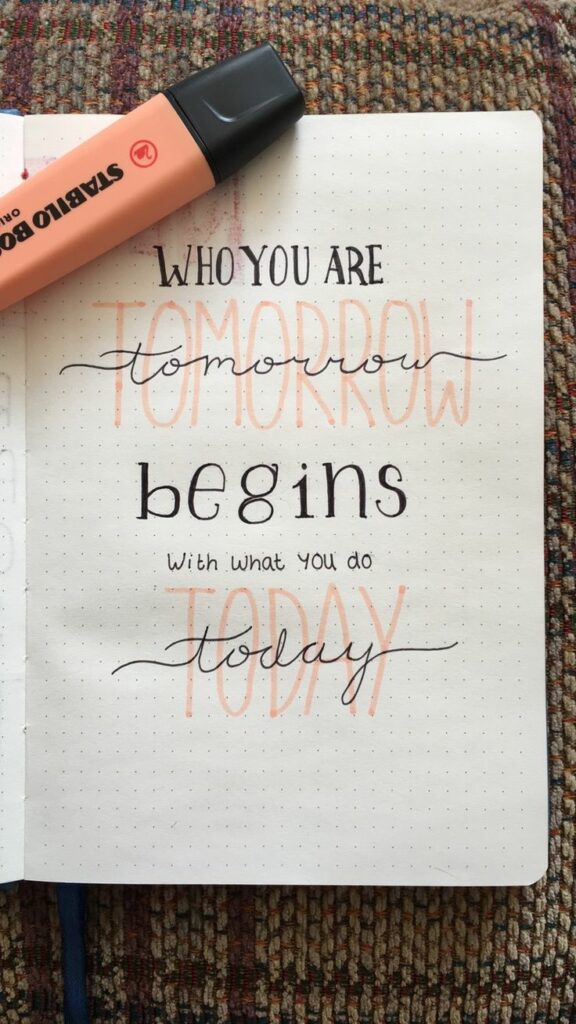 STABILO BO
ORI
WHO YOU ARE
TOMORROW
tomorrow
begins
With what you do
TODAY
today